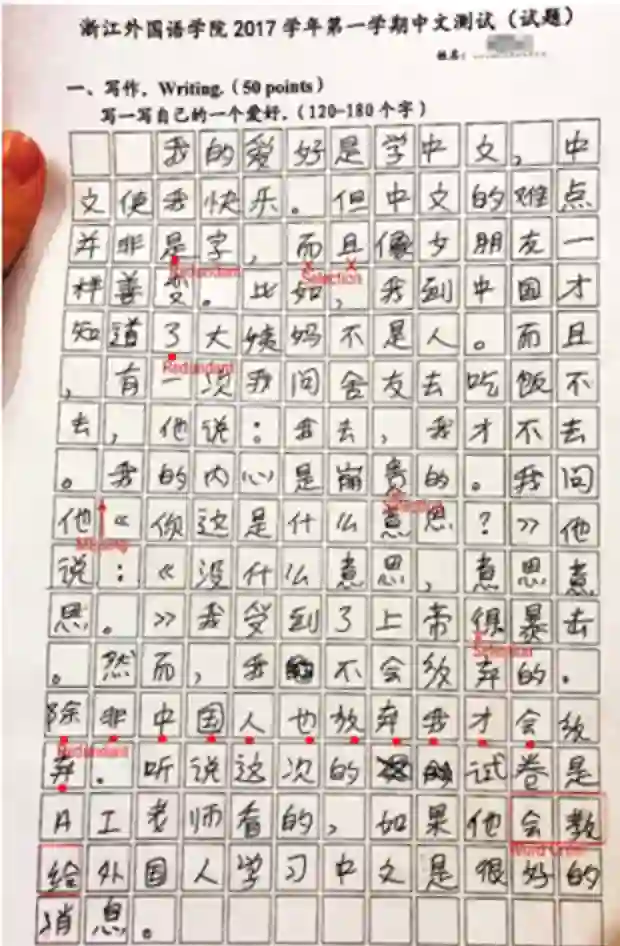 浙江外国语学院 2017 学年第一学期中文测试（试题）
姓名：
一、写作，Writing.（50 points）
写一写自己的一个爱好.（120-180 个字）
我的爱好是学中文，中
文使我快乐。但中文的难点
并非是字，而且像女朋友一
Redundant Selection
样善变。比如，我到中国才
知道了大姨妈不是人。而且
Redundant
，有一次我问舍友去吃饭不
去，他说：我去，我才不去
。我的内心是崩贵的。我问
他《你这是什么意思？》他
Missing
说：《没什么意思，意思意
思。》我受到了上帝很暴击
Selection
。然而，我不会放弃的.
除非中国人也放弃我才会放
Redundant
弃.听说这次的试卷是
AI老师看的，如果他会教
Word Order
给外国人学习中文是很好的
消息。